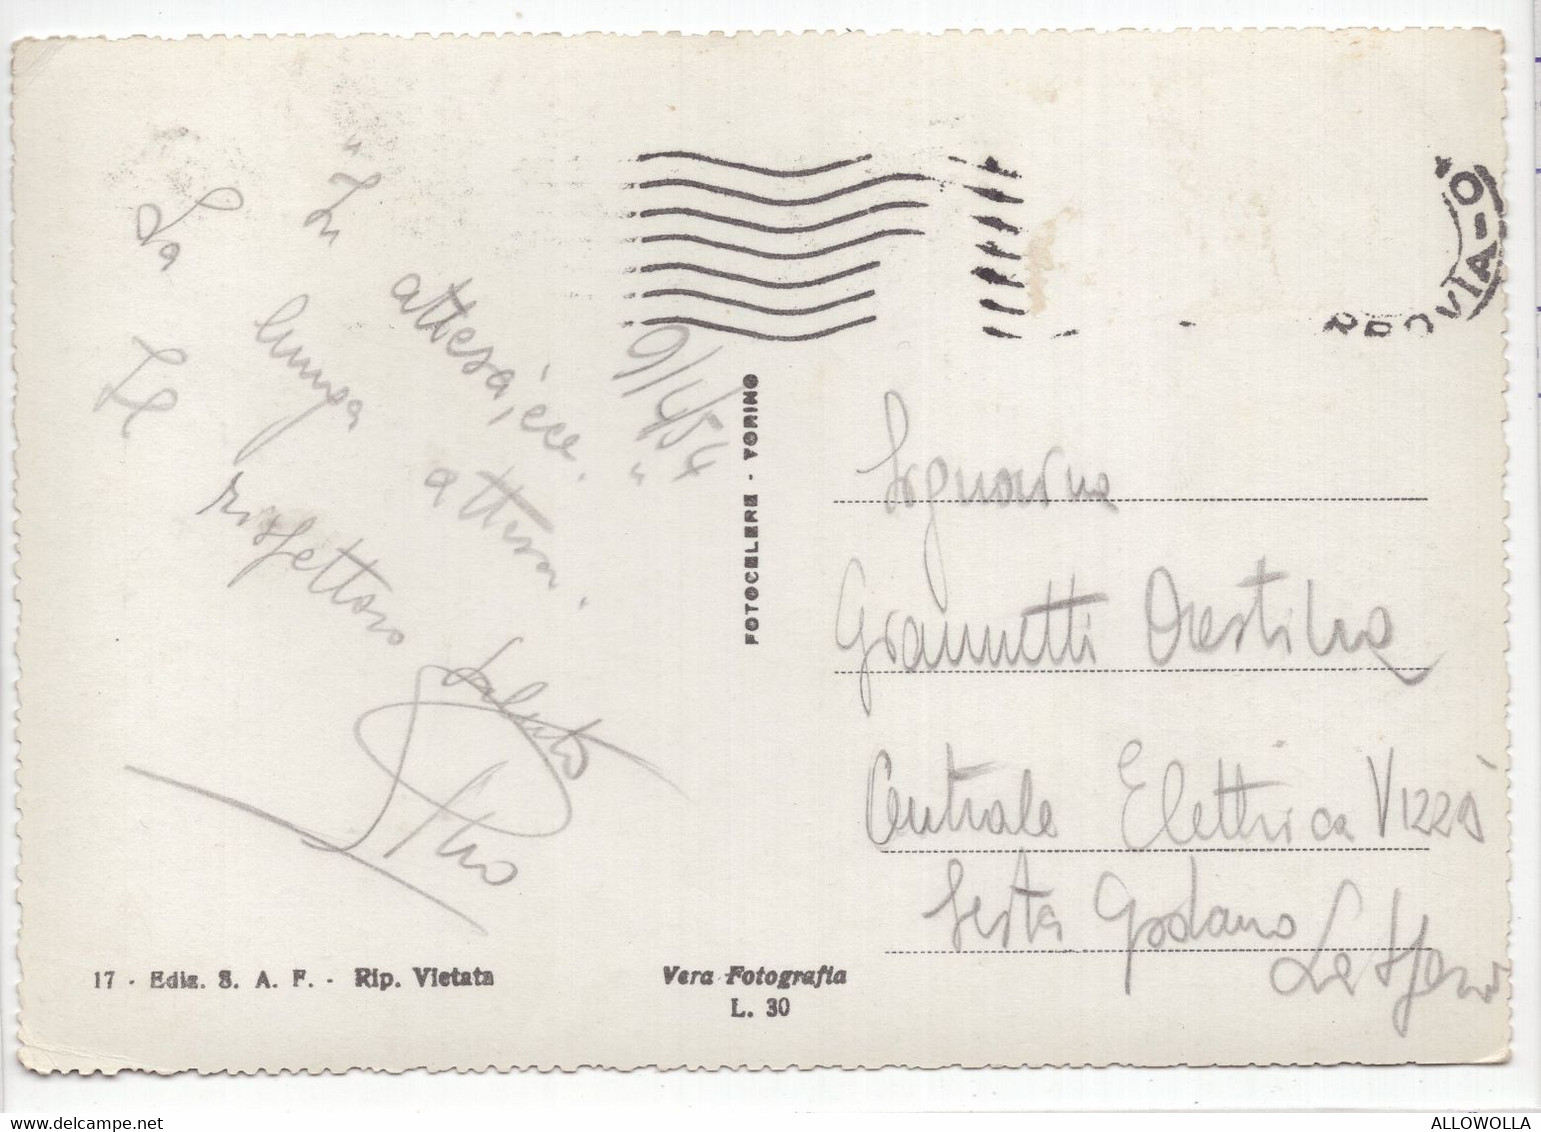 "In attesa, ecc. "
La lunga attesa.
Le rispettoso saluto
9/4/54
FOTOCELERE - TORINO
Signorina
Giannetti Orestina
Centrale Elettrica VIZZÀ
Sesta Godano
La Spezia
17 - Ediz. S. A. F. - Rip. Vietata
Vera Fotografia
L. 30
ALLOWOLLA